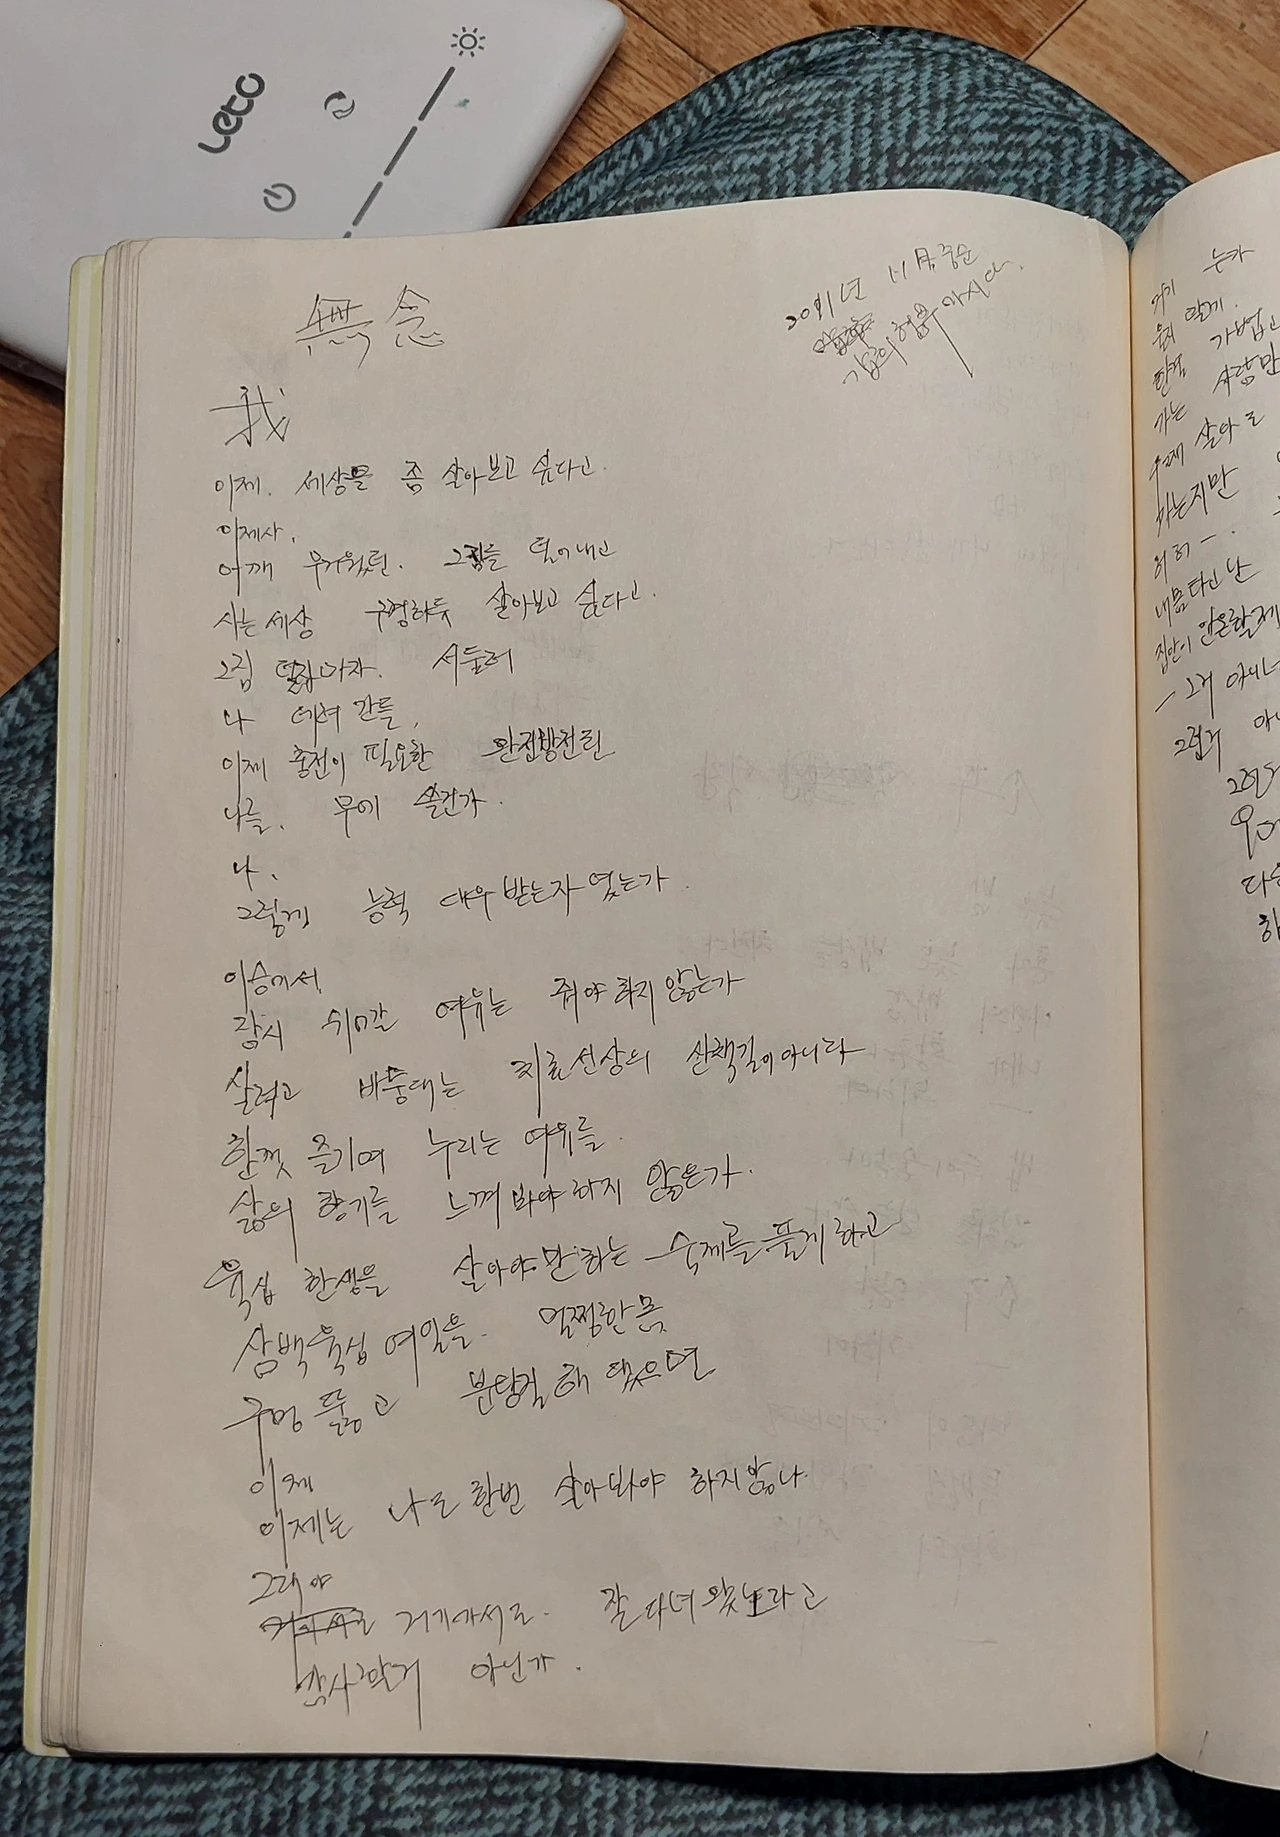 leto
無念
2011년 11月 중순
我
이제. 세상을 좀 살아보고 싶다고.
이제사.
어깨 무거웠던. 그짐을 덜어내고
사는세상 구경하듯 살아보고 싶다고.
그짐 덜집마자. 서둘러
나 데려 간들,
이제 충전이 필요한 완전방전된
나를. 무에 쓸건가.
나.
그렇게 능력 대우 받는자 였는가.
이승에서
잠시 쉬어갈 여유는 줘야 하지 않는가
살려고 바둥대는 치료선상의 산책길이 아니라
한껏 즐기며 누리는 여유를.
삶의 향기를 느껴 봐야 하지 않은가.
육십 한생을 살아야만 하는 숙제를 풀게 하고
삼백육십 여일을. 멀쩡한 몸
구멍 뚫고 분탕질 해 댔으면
이제
이제는 나도 한번 살아봐야 하지 않나.
그래야
거기가서도. 잘 다녀 왔노라고
감사할거 아닌가.
여기 누가
가볍고
사람만
가는
살아도
하는지만
허허 -.
내몸 타고 난
집안이 안온할제
- 그거 아니
그렇게